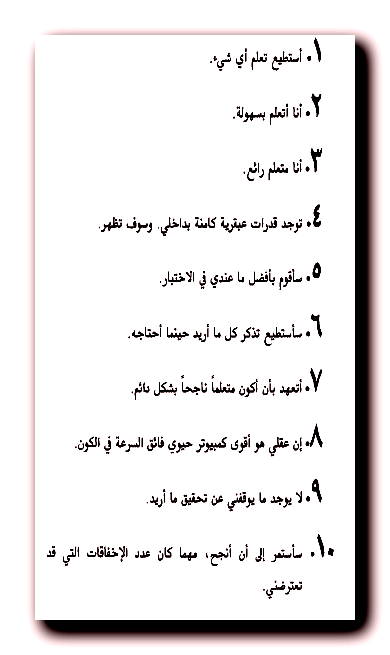 ١. أستطيع تعلم أي شيء.
٢. أنا أتعلم بسهولة.
٣. أنا متعلم رائع.
٤. توجد قدرات عبقرية كامنة بداخلي. وسوف تظهر.
٥. سأقوم بأفضل ما عندي في الاختبار.
٦. سأستطيع تذكر كل ما أريد حينما أحتاجه.
٧. أتعهد بأن أكون متعلماً ناجحاً بشكل دائم.
٨. إن عقلي هو أقوى كمبيوتر حيوي فائق السرعة في الكون.
٩. لا يوجد ما يوقفني عن تحقيق ما أريد.
١٠. سأستمر إلى أن أنجح، مهما كان عدد الإخفاقات التي قد
تعترضني.